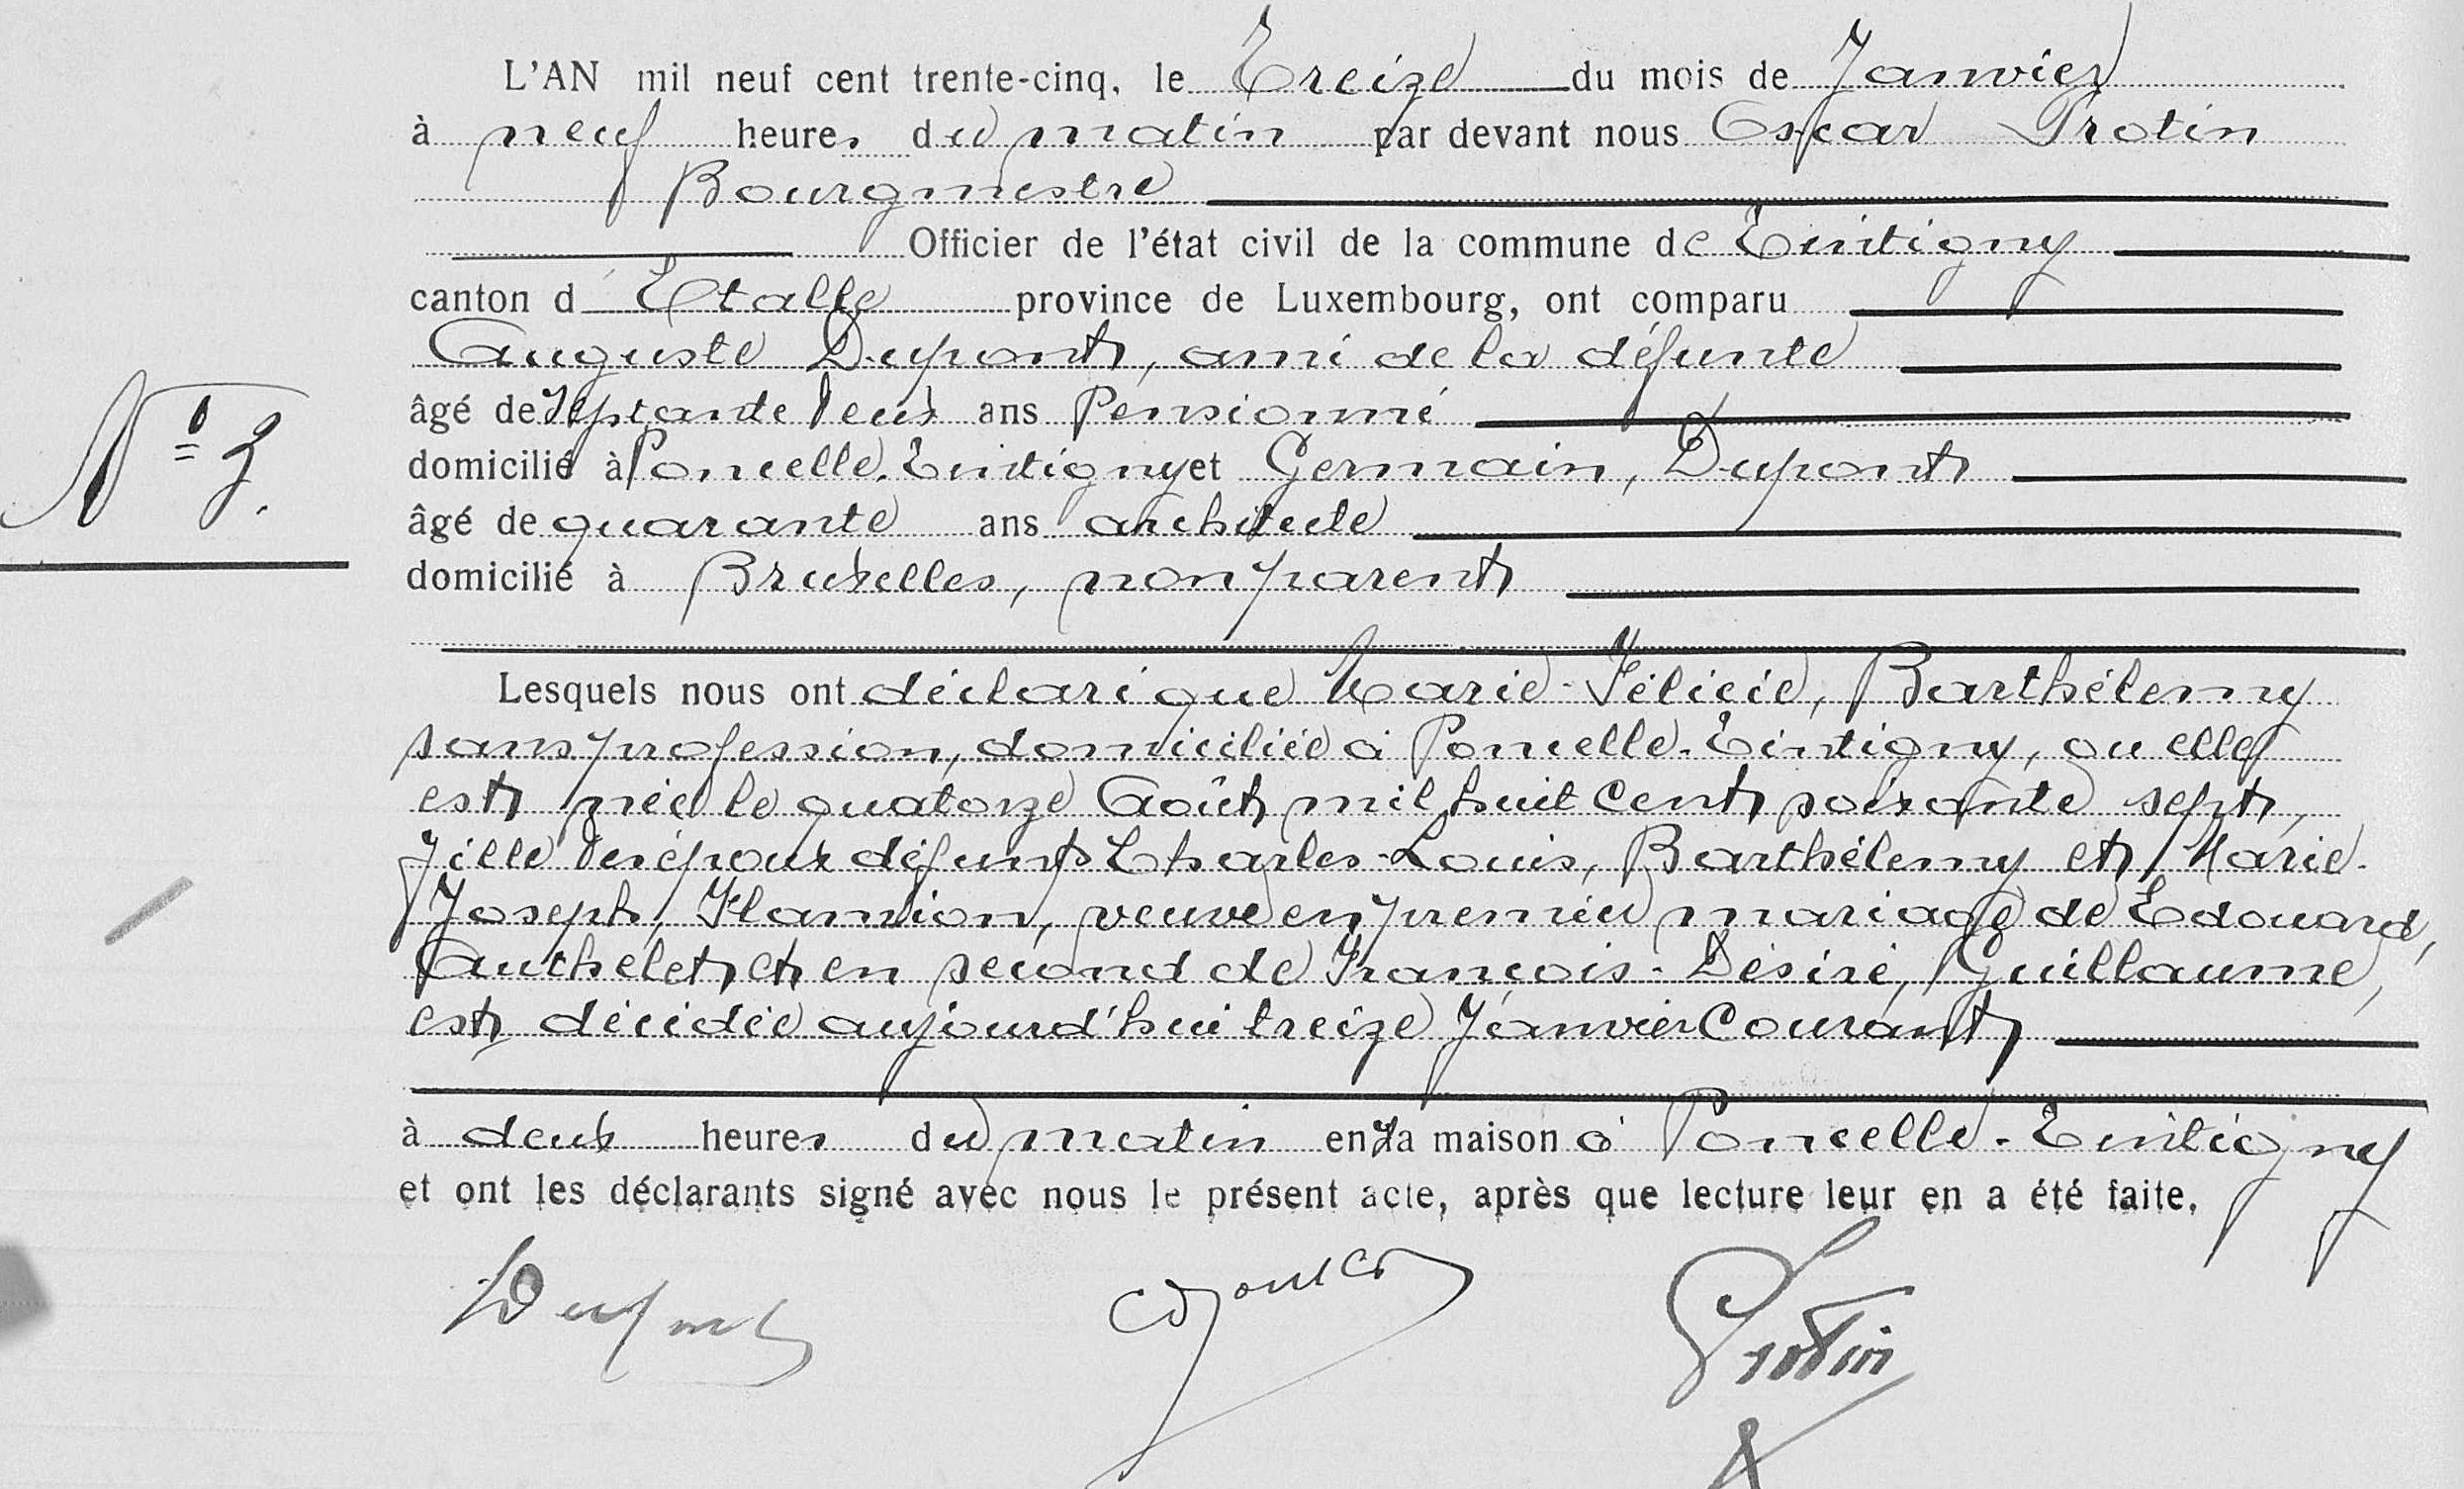 L'AN mil neuf cent trente-cinq, le Treize du mois de Janvier
à neuf heures du matin par devant nous Oscar Protin
Bourgmestre
Officier de l'état civil de la commune de Tintigny
canton d'Etalle province de Luxembourg, ont comparu
Auguste Dupont, ami de la défunte
âgé de septante deux ans Pensionné
domicilié à Poncelle-Tintigny et Germain, Dupont
N° 3.
âgé de quarante ans architecte
domicilié à Bruxelles, non parent
Lesquels nous ont déclaré que Marie-Félicie, Barthélemy
sans profession, domiciliée à Poncelle-Tintigny, ou elle
est née le quatorze Août mil huit cent soixante sept,
fille des époux défunts Charles-Louis, Barthélemy et Marie-
Joseph, Flamion, veuve en premier mariage de Edouard,
Authelet et en second de François-Désiré, Guillaume,
est décédée aujourd'hui treize Janvier Courant
à deux heures du matin en sa maison à Poncelle-Tintigny
et ont les déclarants signé avec nous le présent acte, après que lecture leur en a été faite.
Dupont
Protin